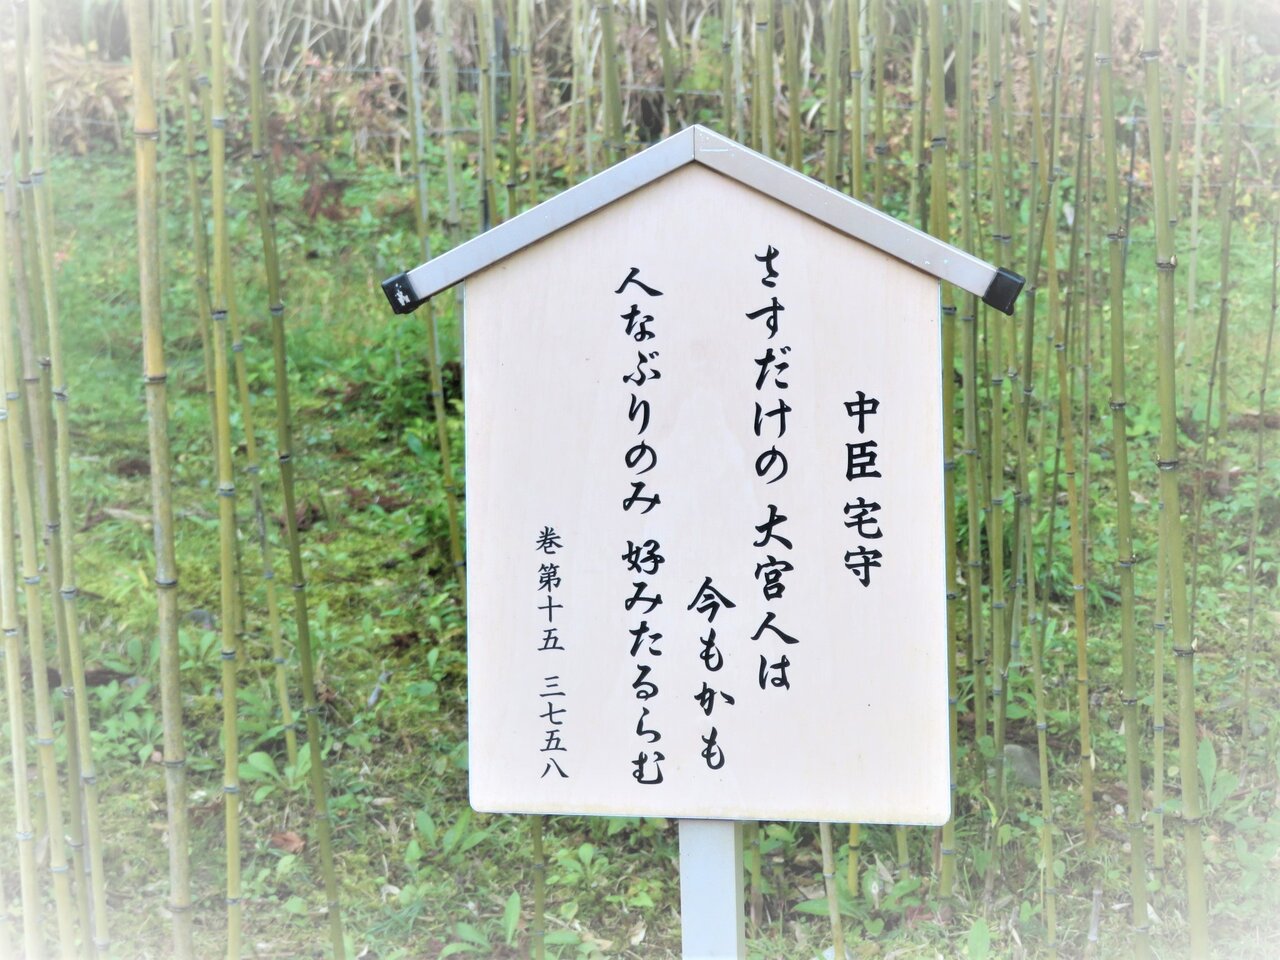 中臣宅守
さすだけの 大宮人は
今もかも
人なぶりのみ 好みたるらむ
巻第十五 三七五八